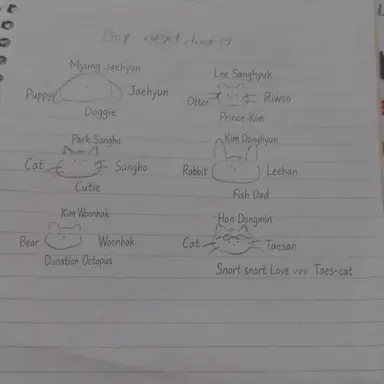 Myung Jaehyun
Puppy Jaehyun
Doggie
Lee Sanghyuk
Otter Riwon
Prince Kim
Park Sungho
Cat Sungho
Cutie
Kim Donghyun
Rabbit Leehan
Fish Dad
Kim Woonhak
Bear Woonhak
Donation Octopus
Han Dongmin
Cat Taesan
Snort snort Love vvv Taes-cat